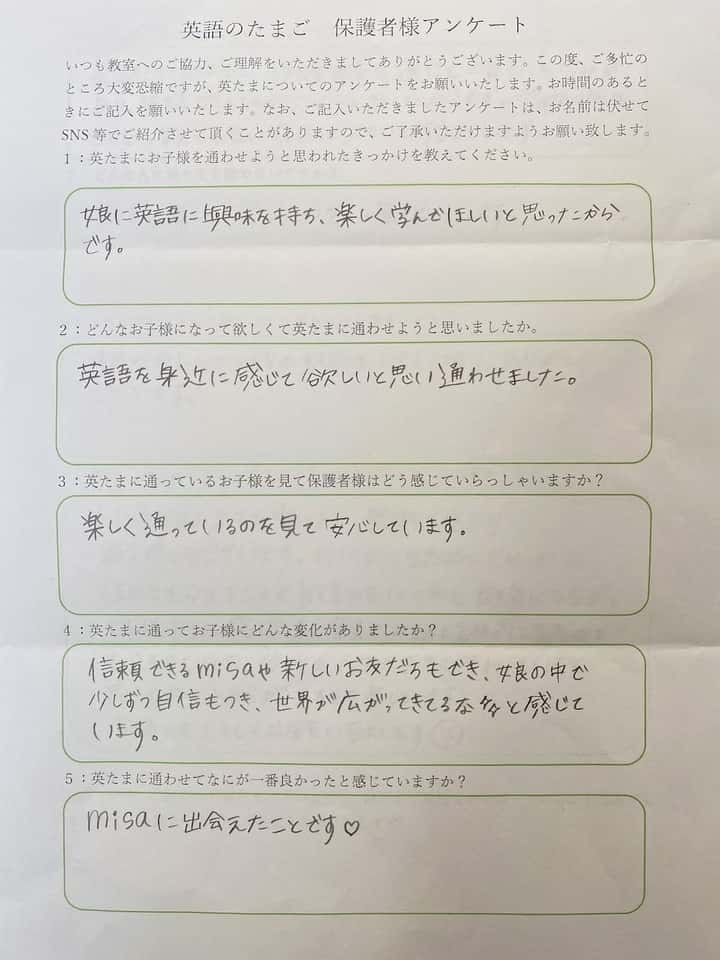 英語のたまご　保護者様アンケート
いつも教室へのご協力、ご理解をいただきましてありがとうございます。この度、ご多忙の
ところ大変恐縮ですが、英たまについてのアンケートをお願いいたします。お時間のあると
きにご記入を願いいたします。なお、ご記入いただきましたアンケートは、お名前は伏せて
SNS 等でご紹介させて頂くことがありますので、ご了承いただけますようお願い致します。
1：英たまにお子様を通わせようと思われたきっかけを教えてください。
娘に英語に興味を持ち、楽しく学んでほしいと思ったから
です。
2：どんなお子様になって欲しくて英たまに通わせようと思いましたか。
英語を身近に感じて欲しいと思い通わせました。
3：英たまに通っているお子様を見て保護者様はどう感じていらっしゃいますか？
楽しく通っているのを見て安心しています。
4：英たまに通ってお子様にどんな変化がありましたか？
信頼できるmisaや新しいお友だちもでき、娘の中で
少しずつ自信もつき、世界が広がってきてるな々と感じて
います。
5：英たまに通わせてなにが一番良かったと感じていますか？
misaに出会えたことです♡